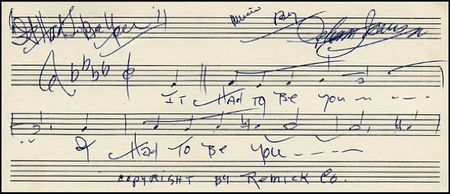 "It Had To Be You" Music By Isham Jones
IT HAD TO BE YOU - - - -
IT HAD TO BE YOU - - - - -
COPYRIGHT BY REMICK CO.